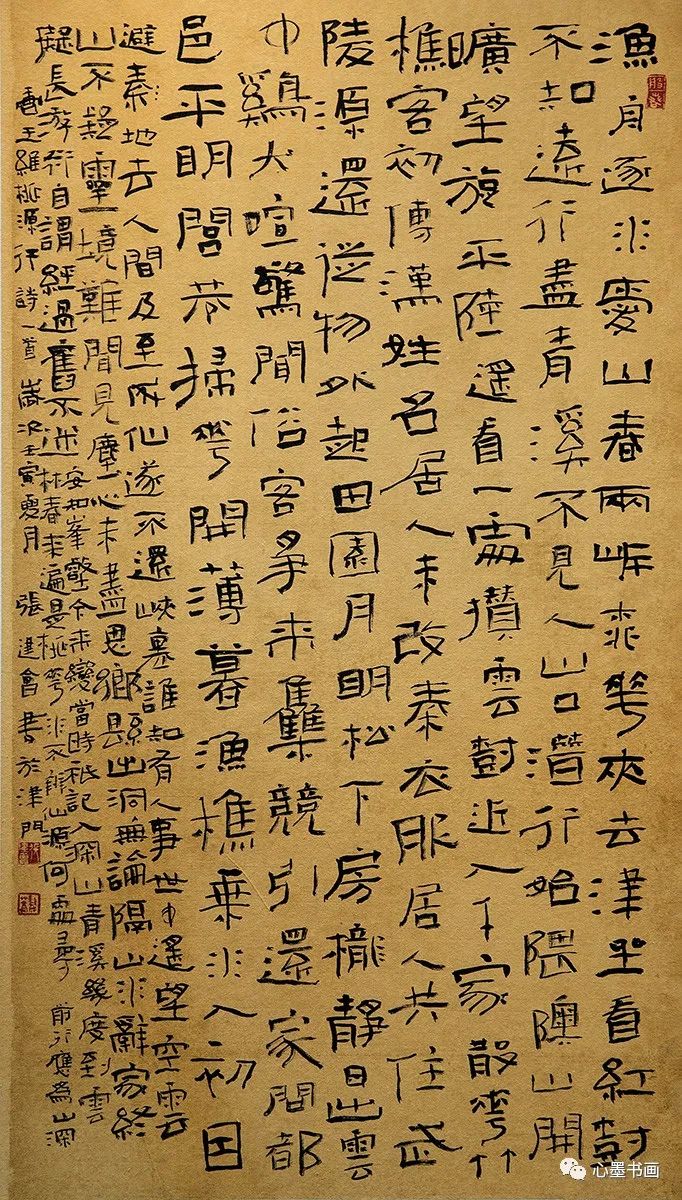 漁舟逐水愛山春兩岸桃花夾去津坐看紅樹
不知遠行盡青溪不見人山口潛行始隈隩山開
曠望旋平陸遥看一處攢雲樹近入千家散花竹
樵客初傳漢姓名居人未改秦衣服居人共住武
陵源還從物外起田園月明松下房櫳靜日出雲
中鷄犬喧驚聞俗客爭來集競引還家問都
邑平明閭巷掃花開薄暮漁樵乘水入初因
避秦地去人間及至成仙遂不還峽裏誰知有人事世中遥望空雲
山不疑靈境難聞見塵心未盡思鄉縣出洞無論隔山水辭家終
擬長游衍自謂經過舊不迷安知峯壑今來變當時秖記入深山青溪幾度至雲
林春來遍是桃花水不辨仙源何處尋
前行應為山深
錄王維桃源行詩一首歲次壬寅夏月張建會書於津門
心墨书画